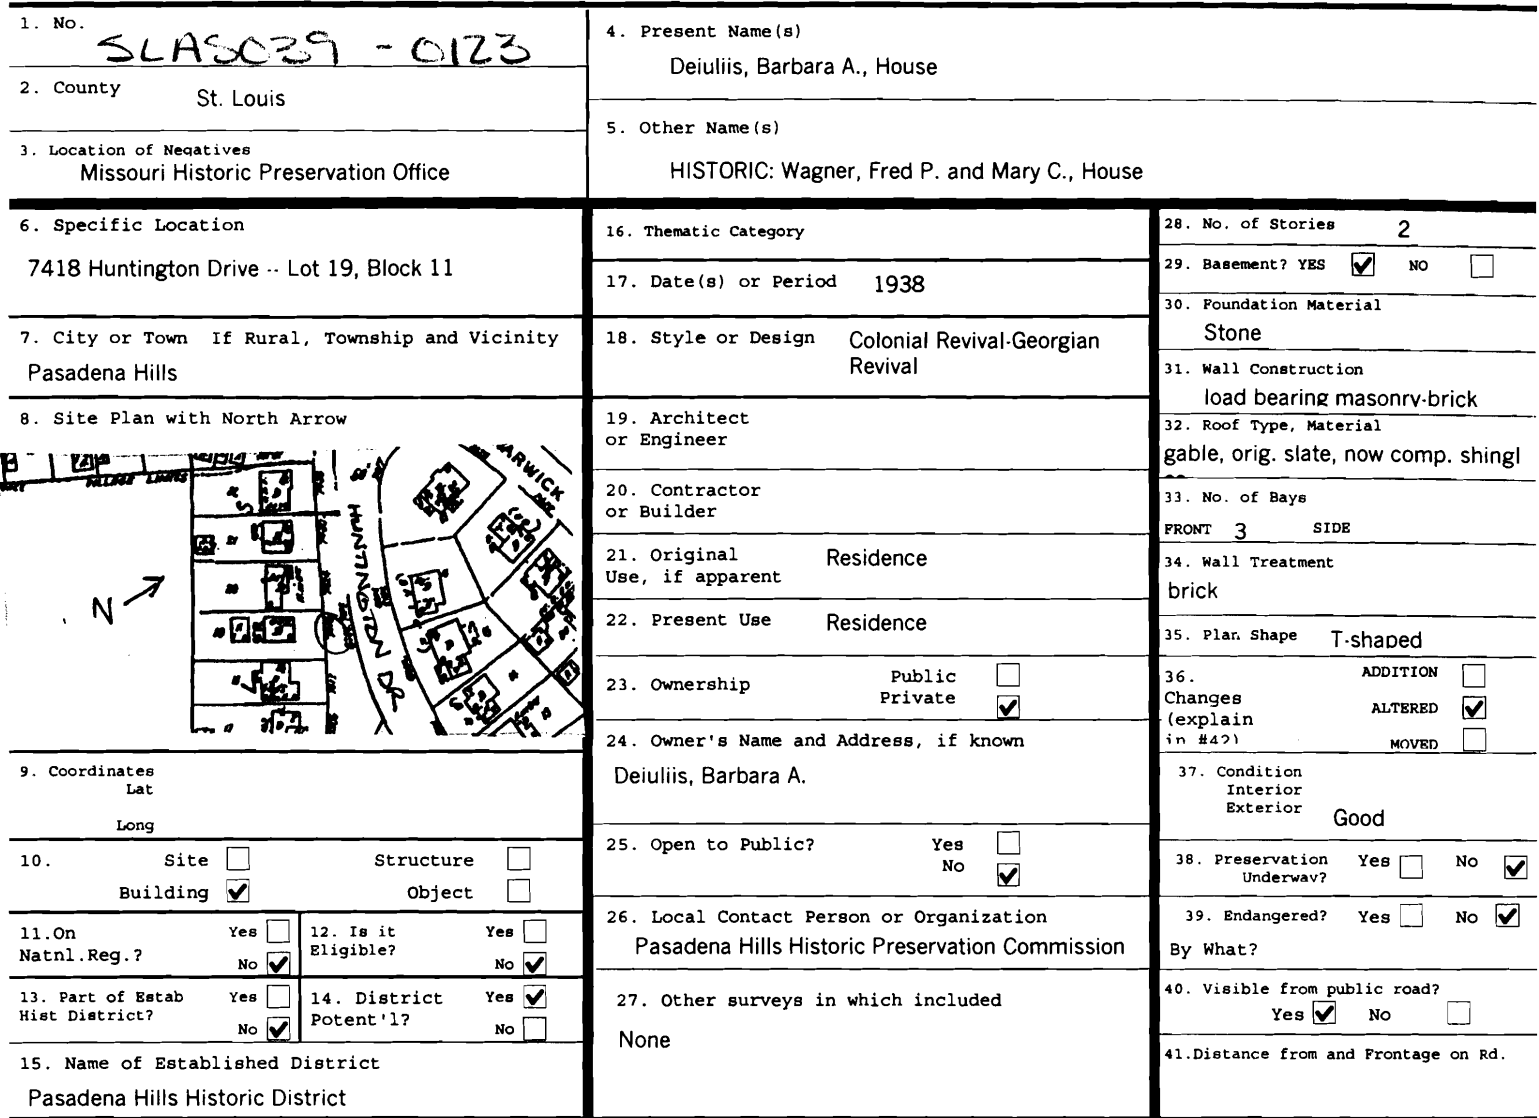 1. No.
SLAS039 - 0123
2. County
St. Louis
3. Location of Negatives
Missouri Historic Preservation Office
4. Present Name(s)
Deiuliis, Barbara A., House
5. Other Name(s)
HISTORIC: Wagner, Fred P. and Mary C., House
6. Specific Location
7418 Huntington Drive -- Lot 19, Block 11
7. City or Town If Rural, Township and Vicinity
Pasadena Hills
8. Site Plan with North Arrow
VILLAGE LIMITS
WARWICK
HUNTINGTON DR.
N
9. Coordinates
Lat
Long
10. Site Structure
Building ✔ Object
11.On Yes
Natnl.Reg.? No ✔
12. Is it Yes
Eligible? No ✔
13. Part of Estab Yes
Hist District? No ✔
14. District Yes ✔
Potent'l? No
15. Name of Established District
Pasadena Hills Historic District
16. Thematic Category
17. Date(s) or Period 1938
18. Style or Design Colonial Revival-Georgian
Revival
19. Architect
or Engineer
20. Contractor
or Builder
21. Original Residence
Use, if apparent
22. Present Use Residence
23. Ownership Public
Private ✔
24. Owner's Name and Address, if known
Deiuliis, Barbara A.
25. Open to Public? Yes
No ✔
26. Local Contact Person or Organization
Pasadena Hills Historic Preservation Commission
27. Other surveys in which included
None
28. No. of Stories 2
29. Basement? YES ✔ NO
30. Foundation Material
Stone
31. Wall Construction
load bearing masonry-brick
32. Roof Type, Material
gable, orig. slate, now comp. shingl
33. No. of Bays
FRONT 3 SIDE
34. Wall Treatment
brick
35. Plan Shape T-shaped
36. ADDITION
Changes
(explain ALTERED ✔
in #42) MOVED
37. Condition
Interior
Exterior Good
38. Preservation Yes No ✔
Underway?
39. Endangered? Yes No ✔
By What?
40. Visible from public road?
Yes ✔ No
41.Distance from and Frontage on Rd.